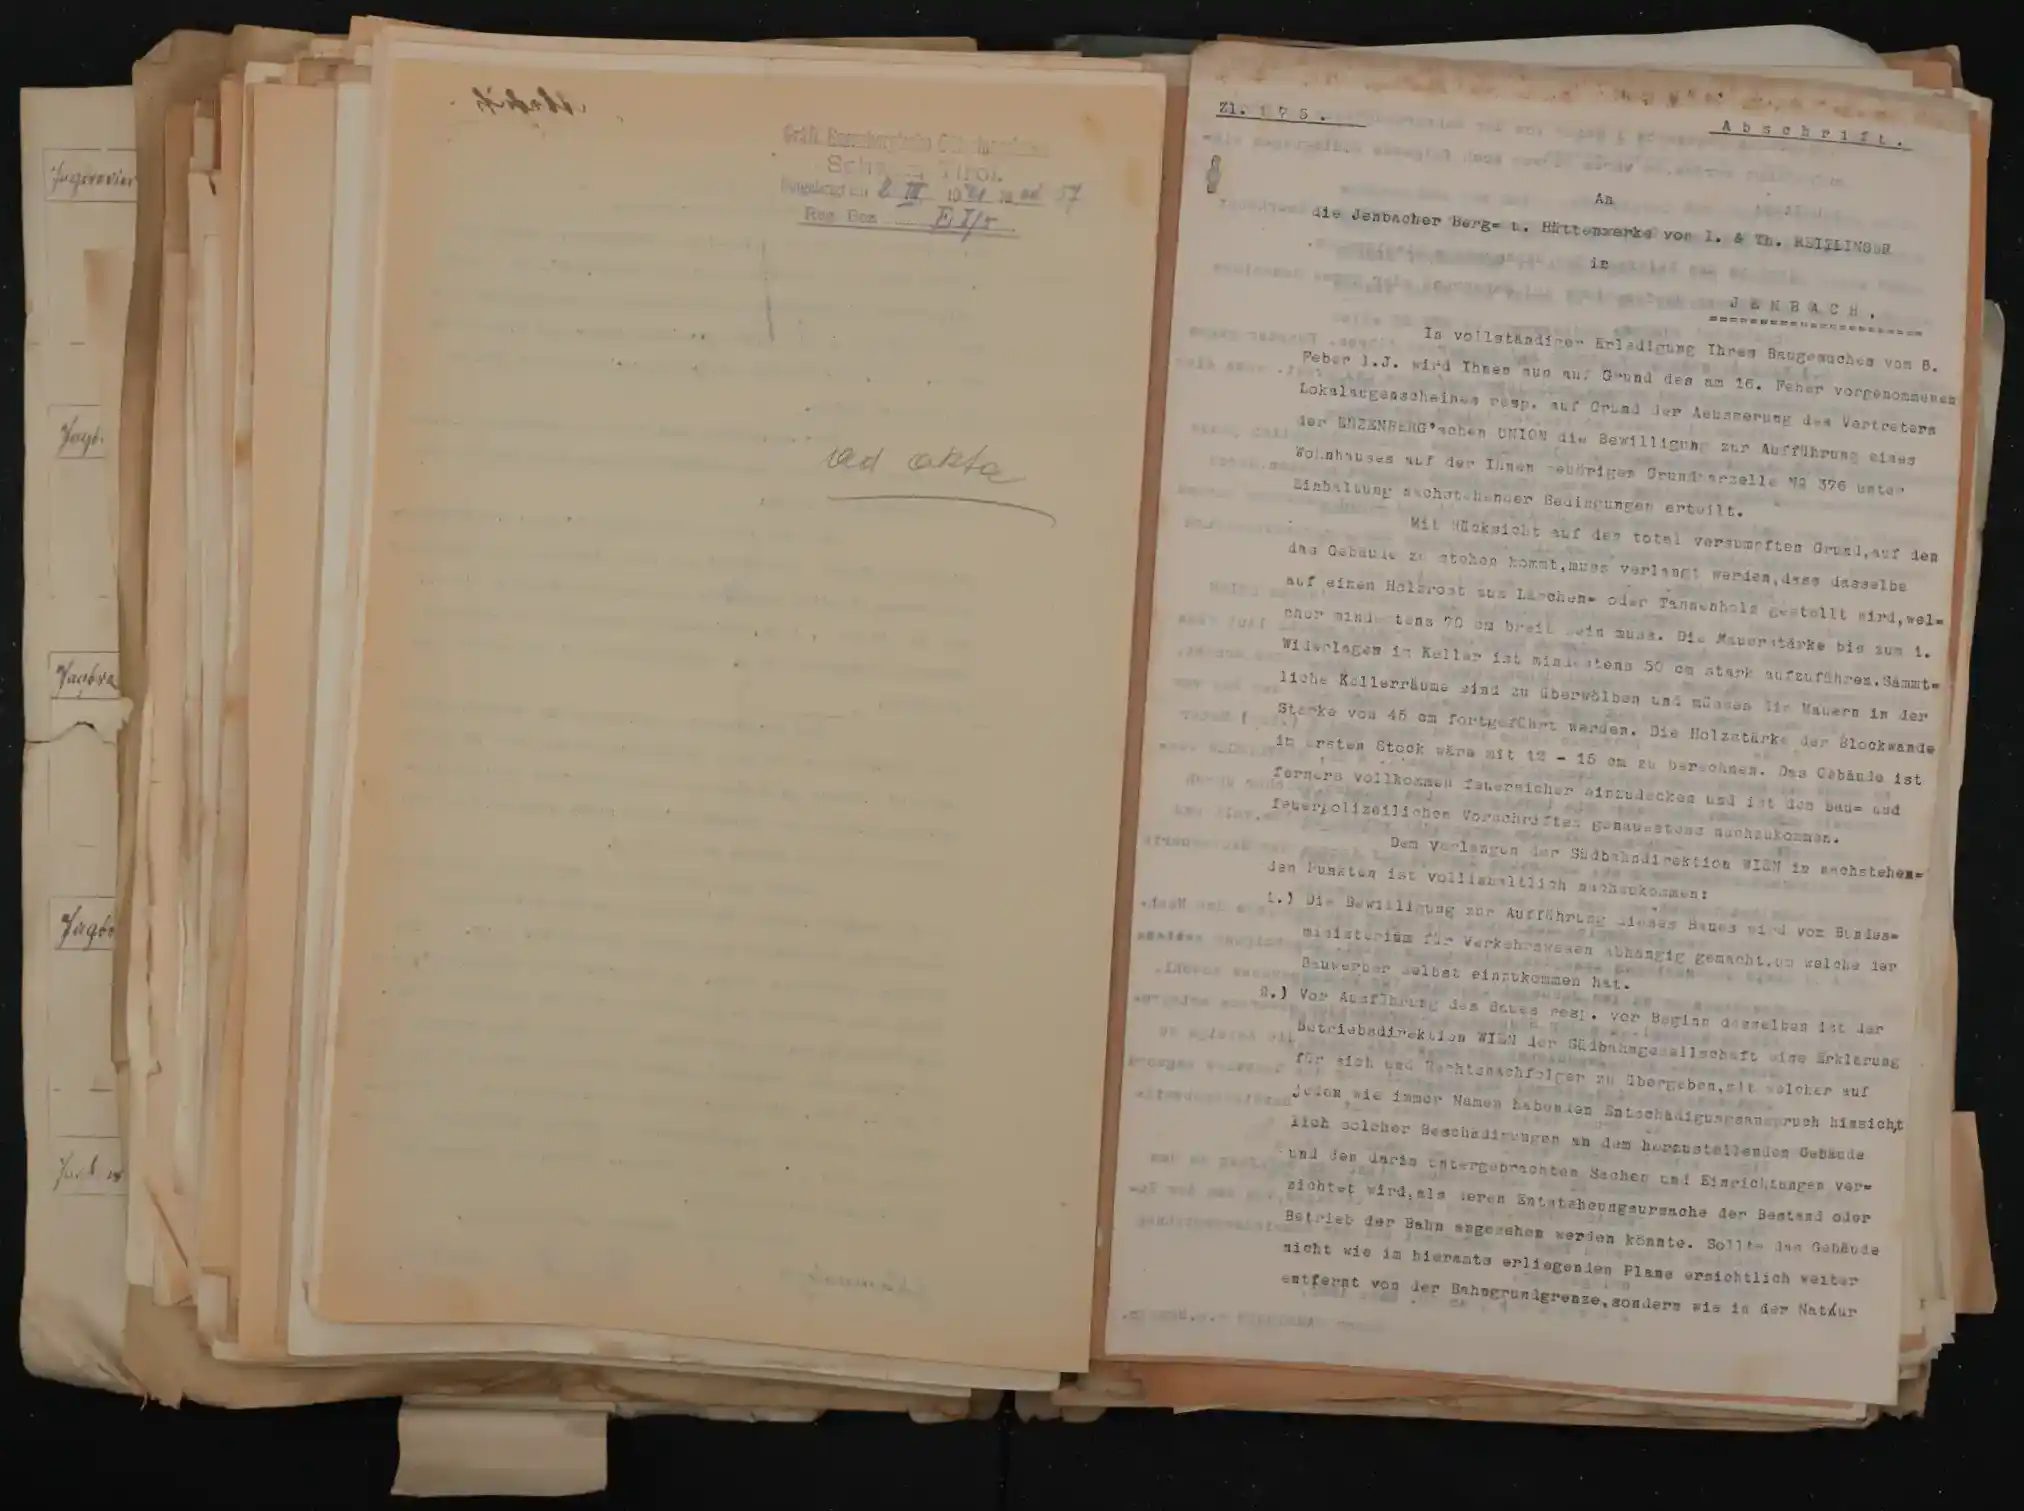 Jagdrevier
Jagd.
Schwaz Tirol.
Eingelangt am 2. III 1921
Reg. Bez. E I/5
ad akta
Zl. 175.
Abschrift.
An
die Jenbacher Berg= u. Hüttenwerke von I. & Th. REITLINGER
in
JENBACH.
In vollständiger Erledigung Ihres Baugesuches vom 8.
Feber l.J. wird Ihnen nun auf Grund des am 16. Feber vorgenommenen
Lokalaugenscheines resp. auf Grund der Aeusserung des Vertreters
der ENZENBERG'schen UNION die Bewilligung zur Aufführung eines
Wohnhauses auf der Ihnen gehörigen Grundparzelle № 376 unter
Einhaltung nachstehender Bedingungen erteilt.
Mit Rücksicht auf den total versumpften Grund,auf den
das Gebäude zu stehen kommt,muss verlangt werden,dass dasselbe
auf einen Holzrost aus Lärchen= oder Tannenholz gestellt wird,wel=
cher mindestens 70 cm breit sein muss. Die Mauerstärke bis zum 1.
Widerlagen im Keller ist mindestens 50 cm stark aufzuführen.Sämmt=
liche Kellerräume sind zu überwölben und müssen die Mauern in der
Stärke von 45 cm fortgeführt werden. Die Holzstärke der Blockwände
im ersten Stock wäre mit 12 - 15 cm zu berechnen. Das Gebäude ist
ferners vollkommen feuersicher einzudecken und ist den bau= und
feuerpolizeilichen Vorschriften genauestens nachzukommen.
Dem Verlangen der Südbahndirektion WIEN in nachstehen=
den Punkten ist vollinhaltlich nachzukommen:
1.) Die Bewilligung zur Aufführung dieses Baues wird vom Bundes=
ministerium für Verkehrswesen abhängig gemacht,um welche der
Bauwerber selbst einzukommen hat.
2.) Vor Ausführung des Baues resp. vor Beginn desselben ist der
Betriebsdirektion WIEN der Südbahngesellschaft eine Erklärung
für sich und Rechtsnachfolger zu übergeben,mit welcher auf
jeden wie immer Namen habenden Entschädigungsanspruch hinsicht
lich solcher Beschädigungen an dem herzustellenden Gebäude
und den darin untergebrachten Sachen und Einrichtungen ver=
zichtet wird,als deren Entstehungsursache der Bestand oder
Betrieb der Bahn angesehen werden könnte. Sollte das Gebäude
nicht wie im hieramts erliegenden Plane ersichtlich weiter
entfernt von der Bahngrundgrenze,sondern wie in der Natur